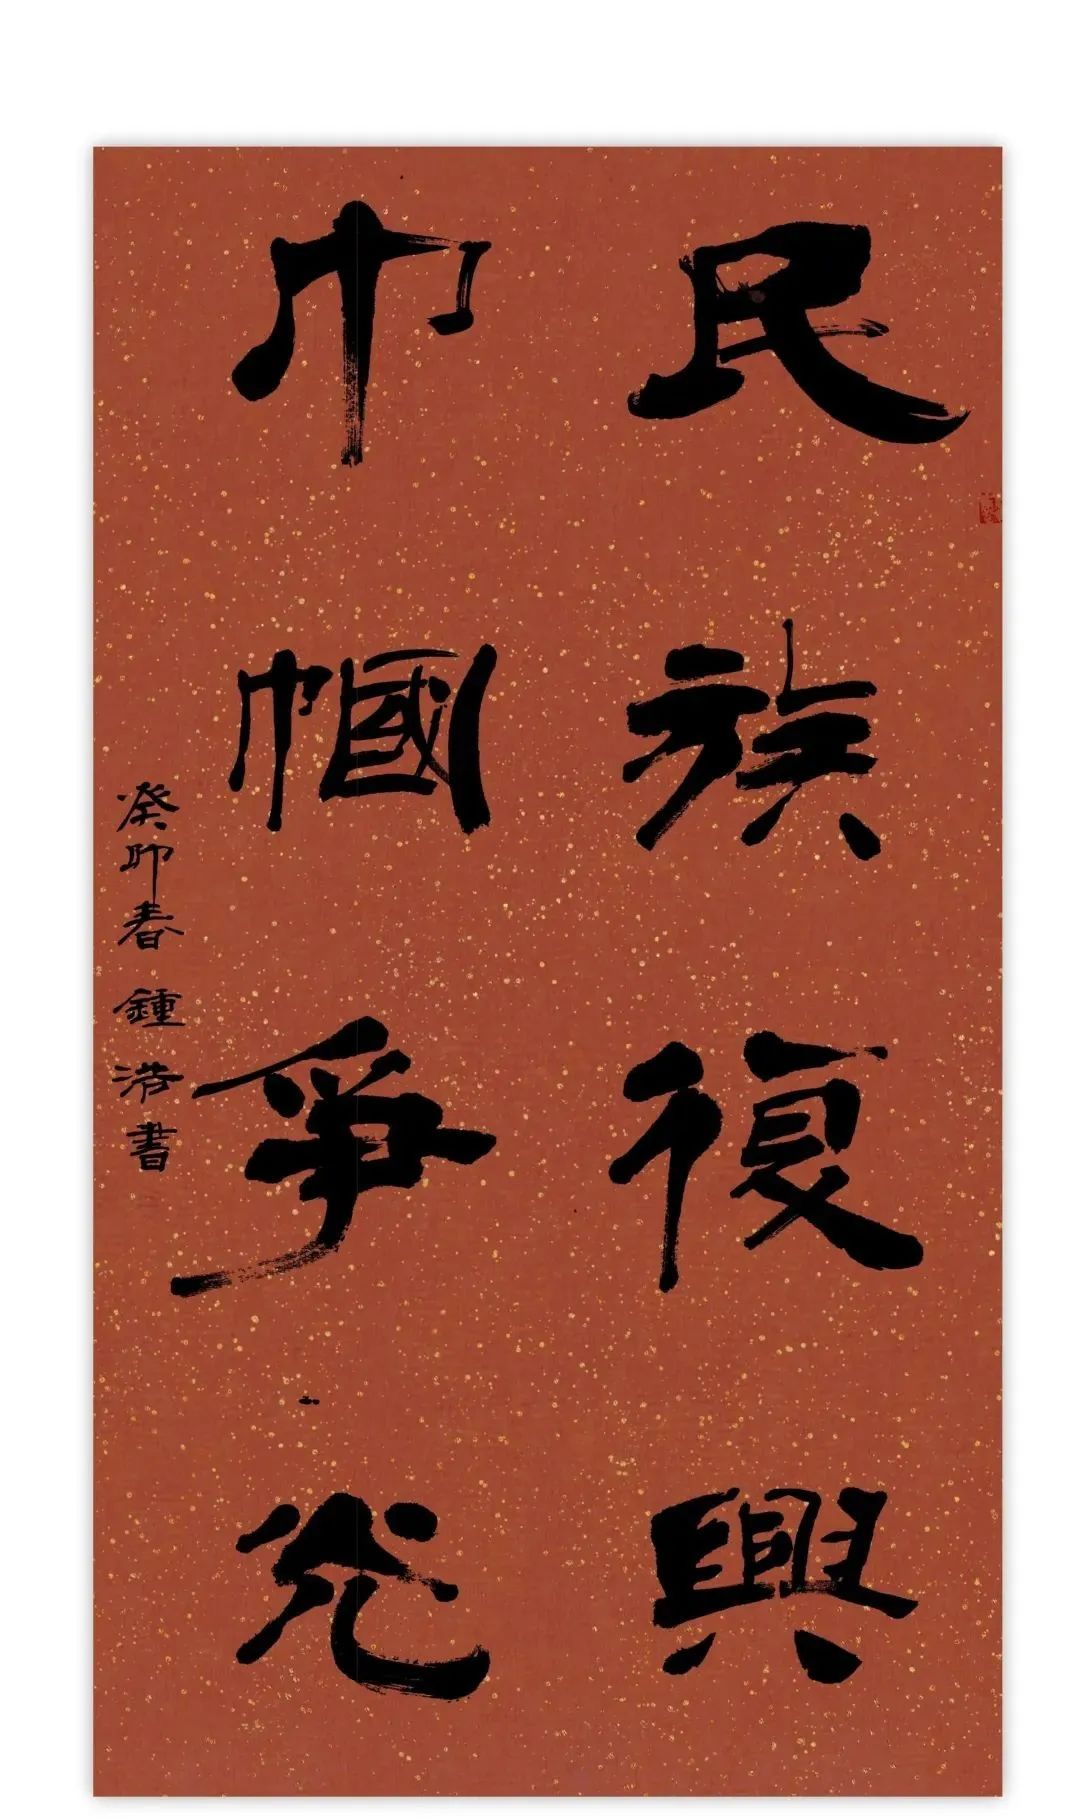 民族復興
巾幗爭光
癸卯春 鍾浩書